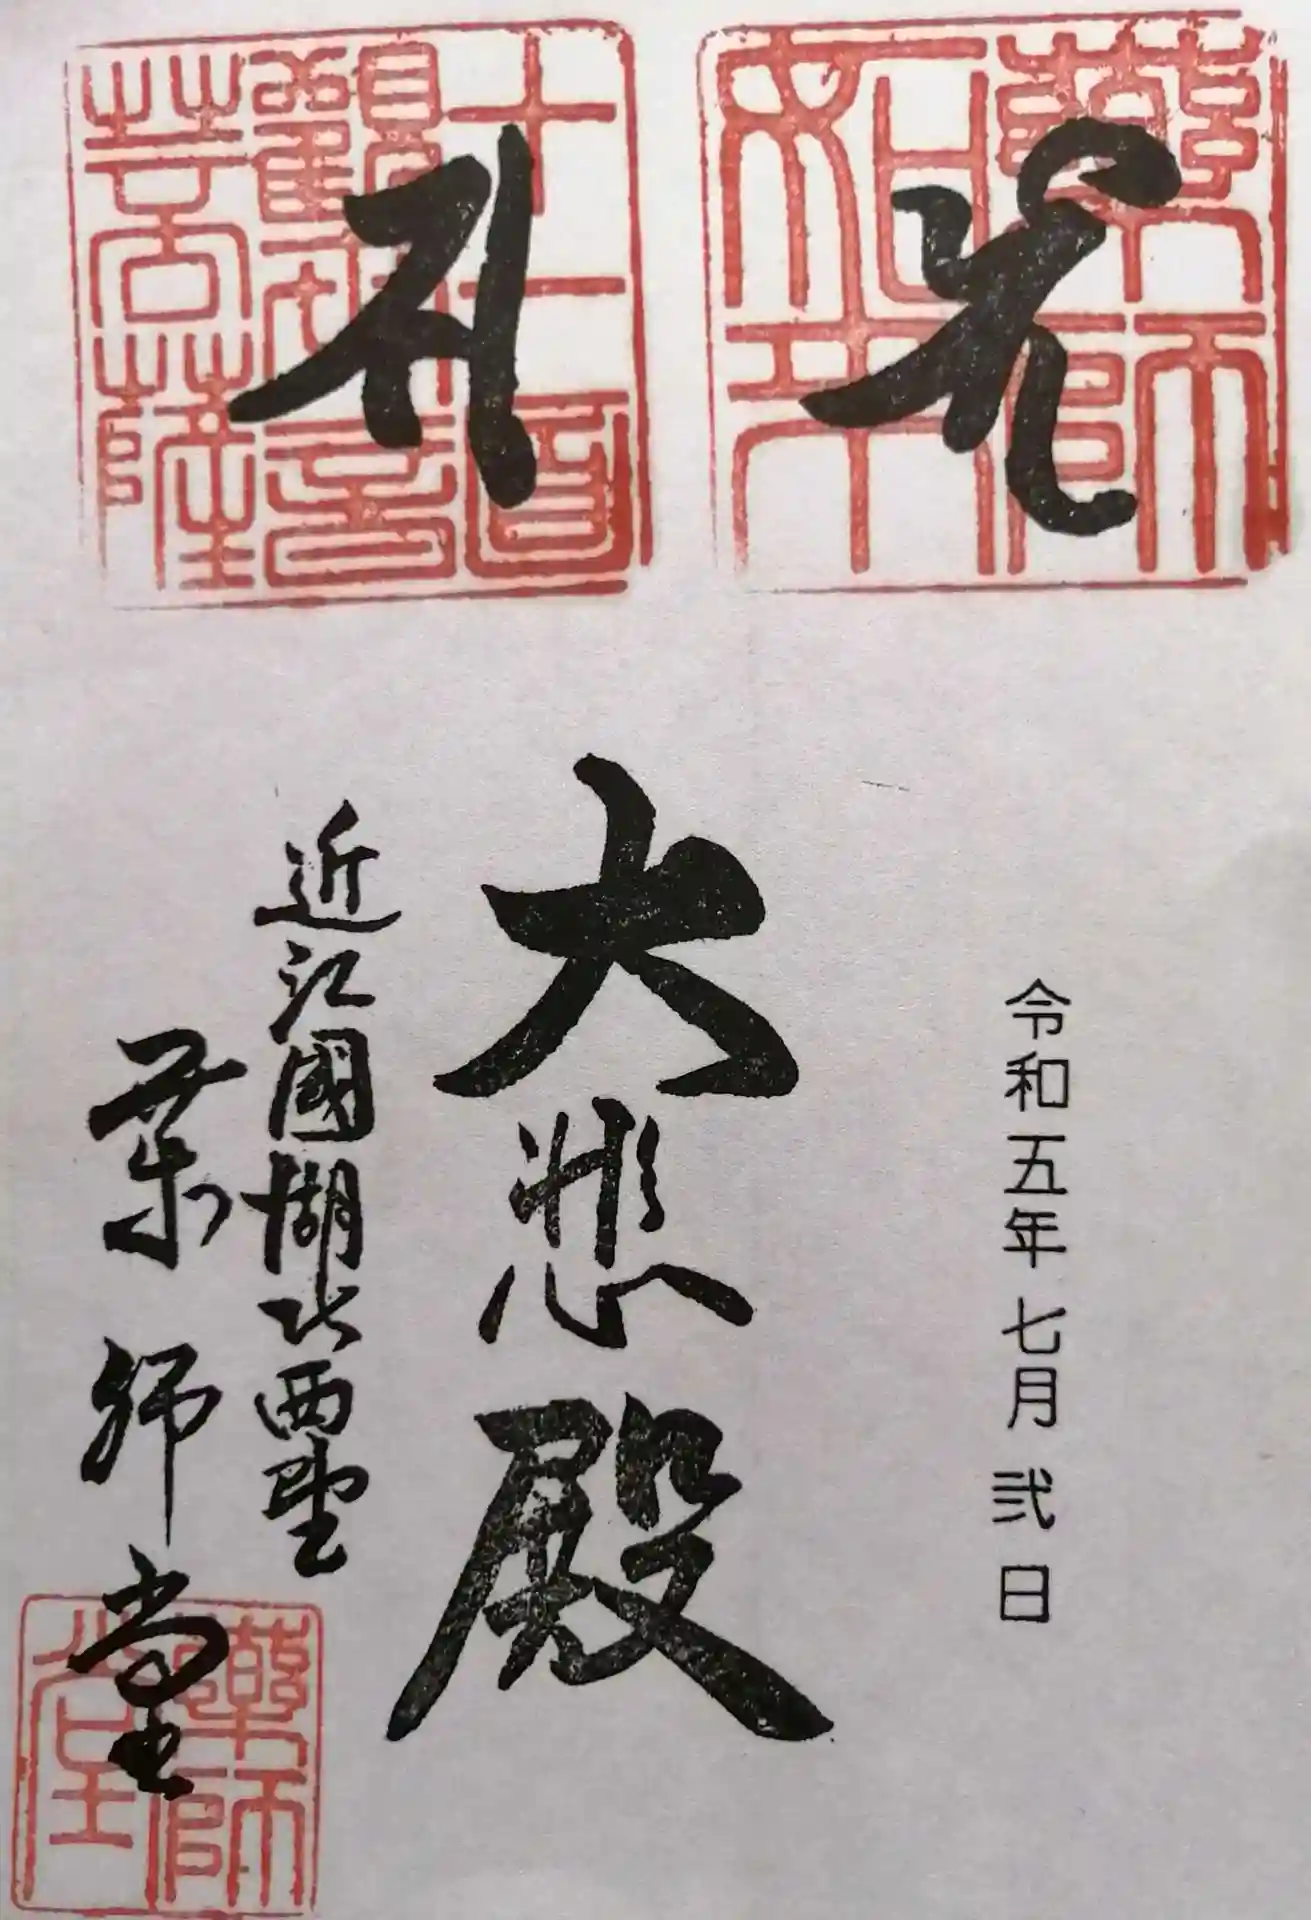 薬師如来
十一面観世音菩薩
令和五年七月弐日
大悲殿
近江國湖北西野
薬師堂
薬師堂